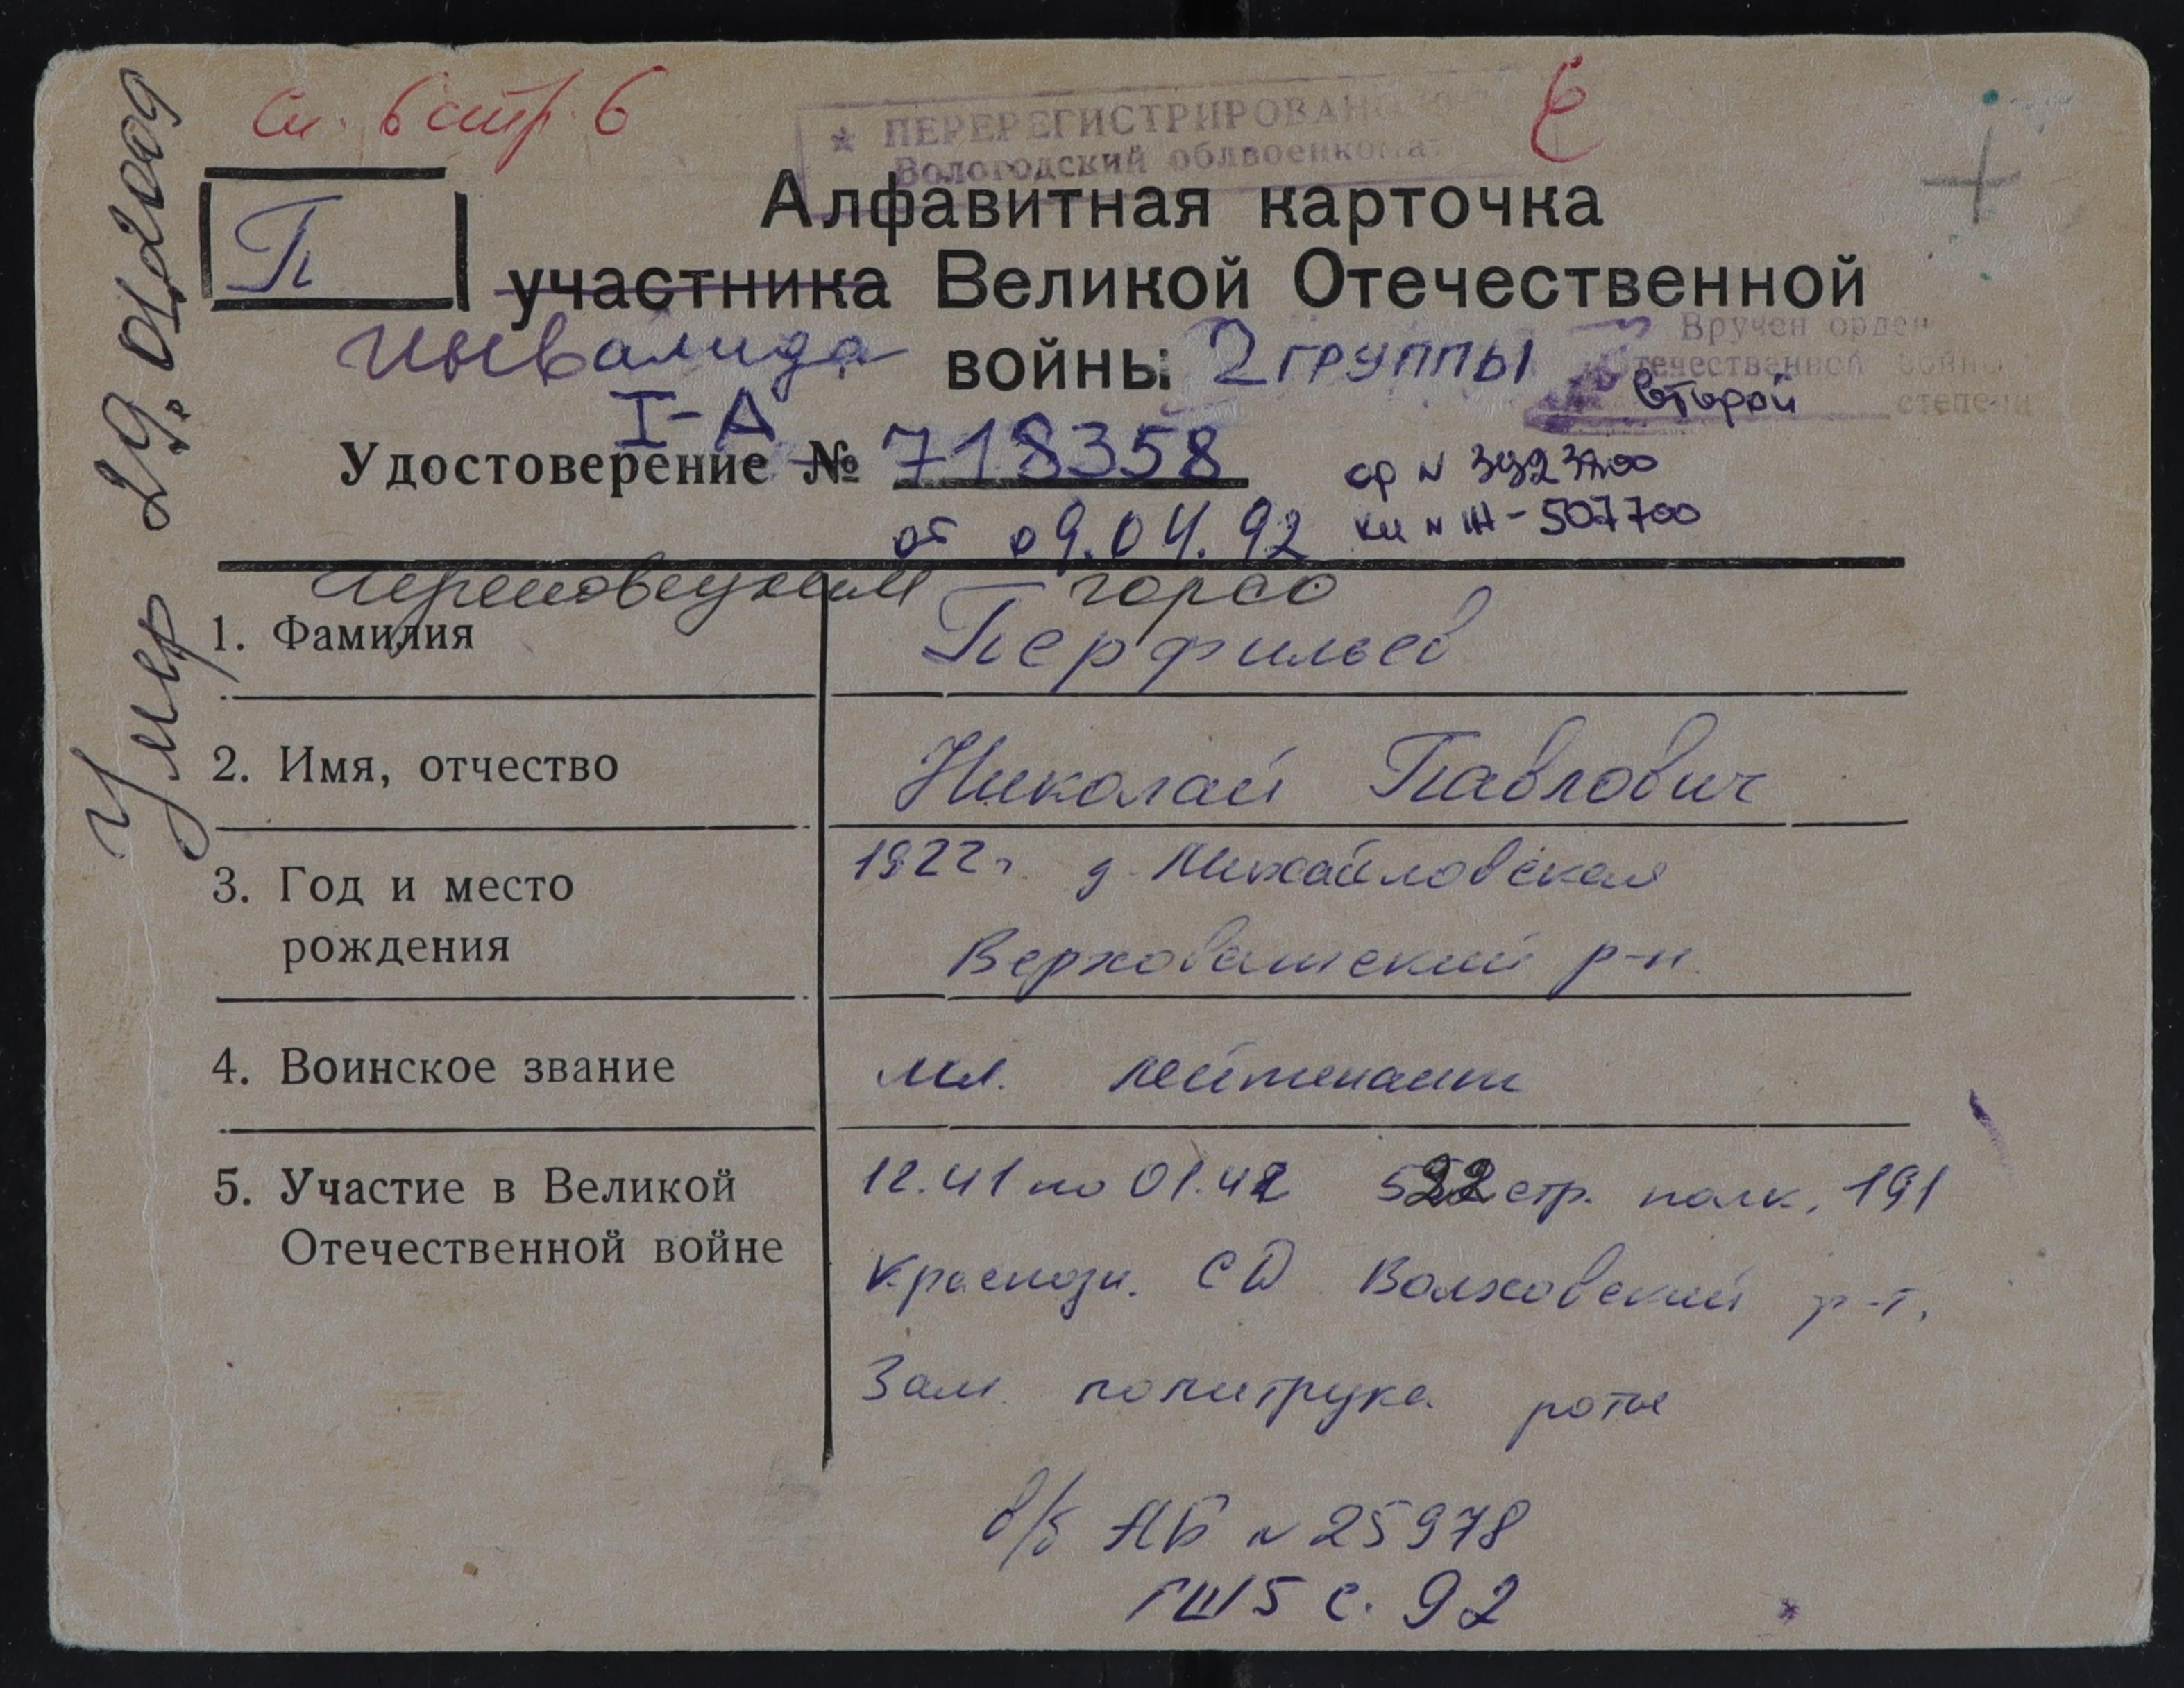 См. 6 стр. 6
* ПЕРЕРЕГИСТРИРОВАНО
Вологодский облвоенкомат
П
Алфавитная карточка
участника Великой Отечественной
инвалида войны 2 ГРУППЫ
Вручен орден
Отечественной войны
второй степени
I-А
Удостоверение № 718358
от 09.04.92
ор N
кн N
Череповецким горсо
Умер 29.01.2009
1. Фамилия Перфильев
2. Имя, отчество Николай Павлович
3. Год и место рождения 1922 г. д. Михайловская
Верховажский р-н.
4. Воинское звание мл. лейтенант
5. Участие в Великой Отечественной войне 12.41 по 01.42 522 стр. полк, 191
Краснозн. СД Волховский
Зам. политрука роты
в/б АБ N 25978
с. 92